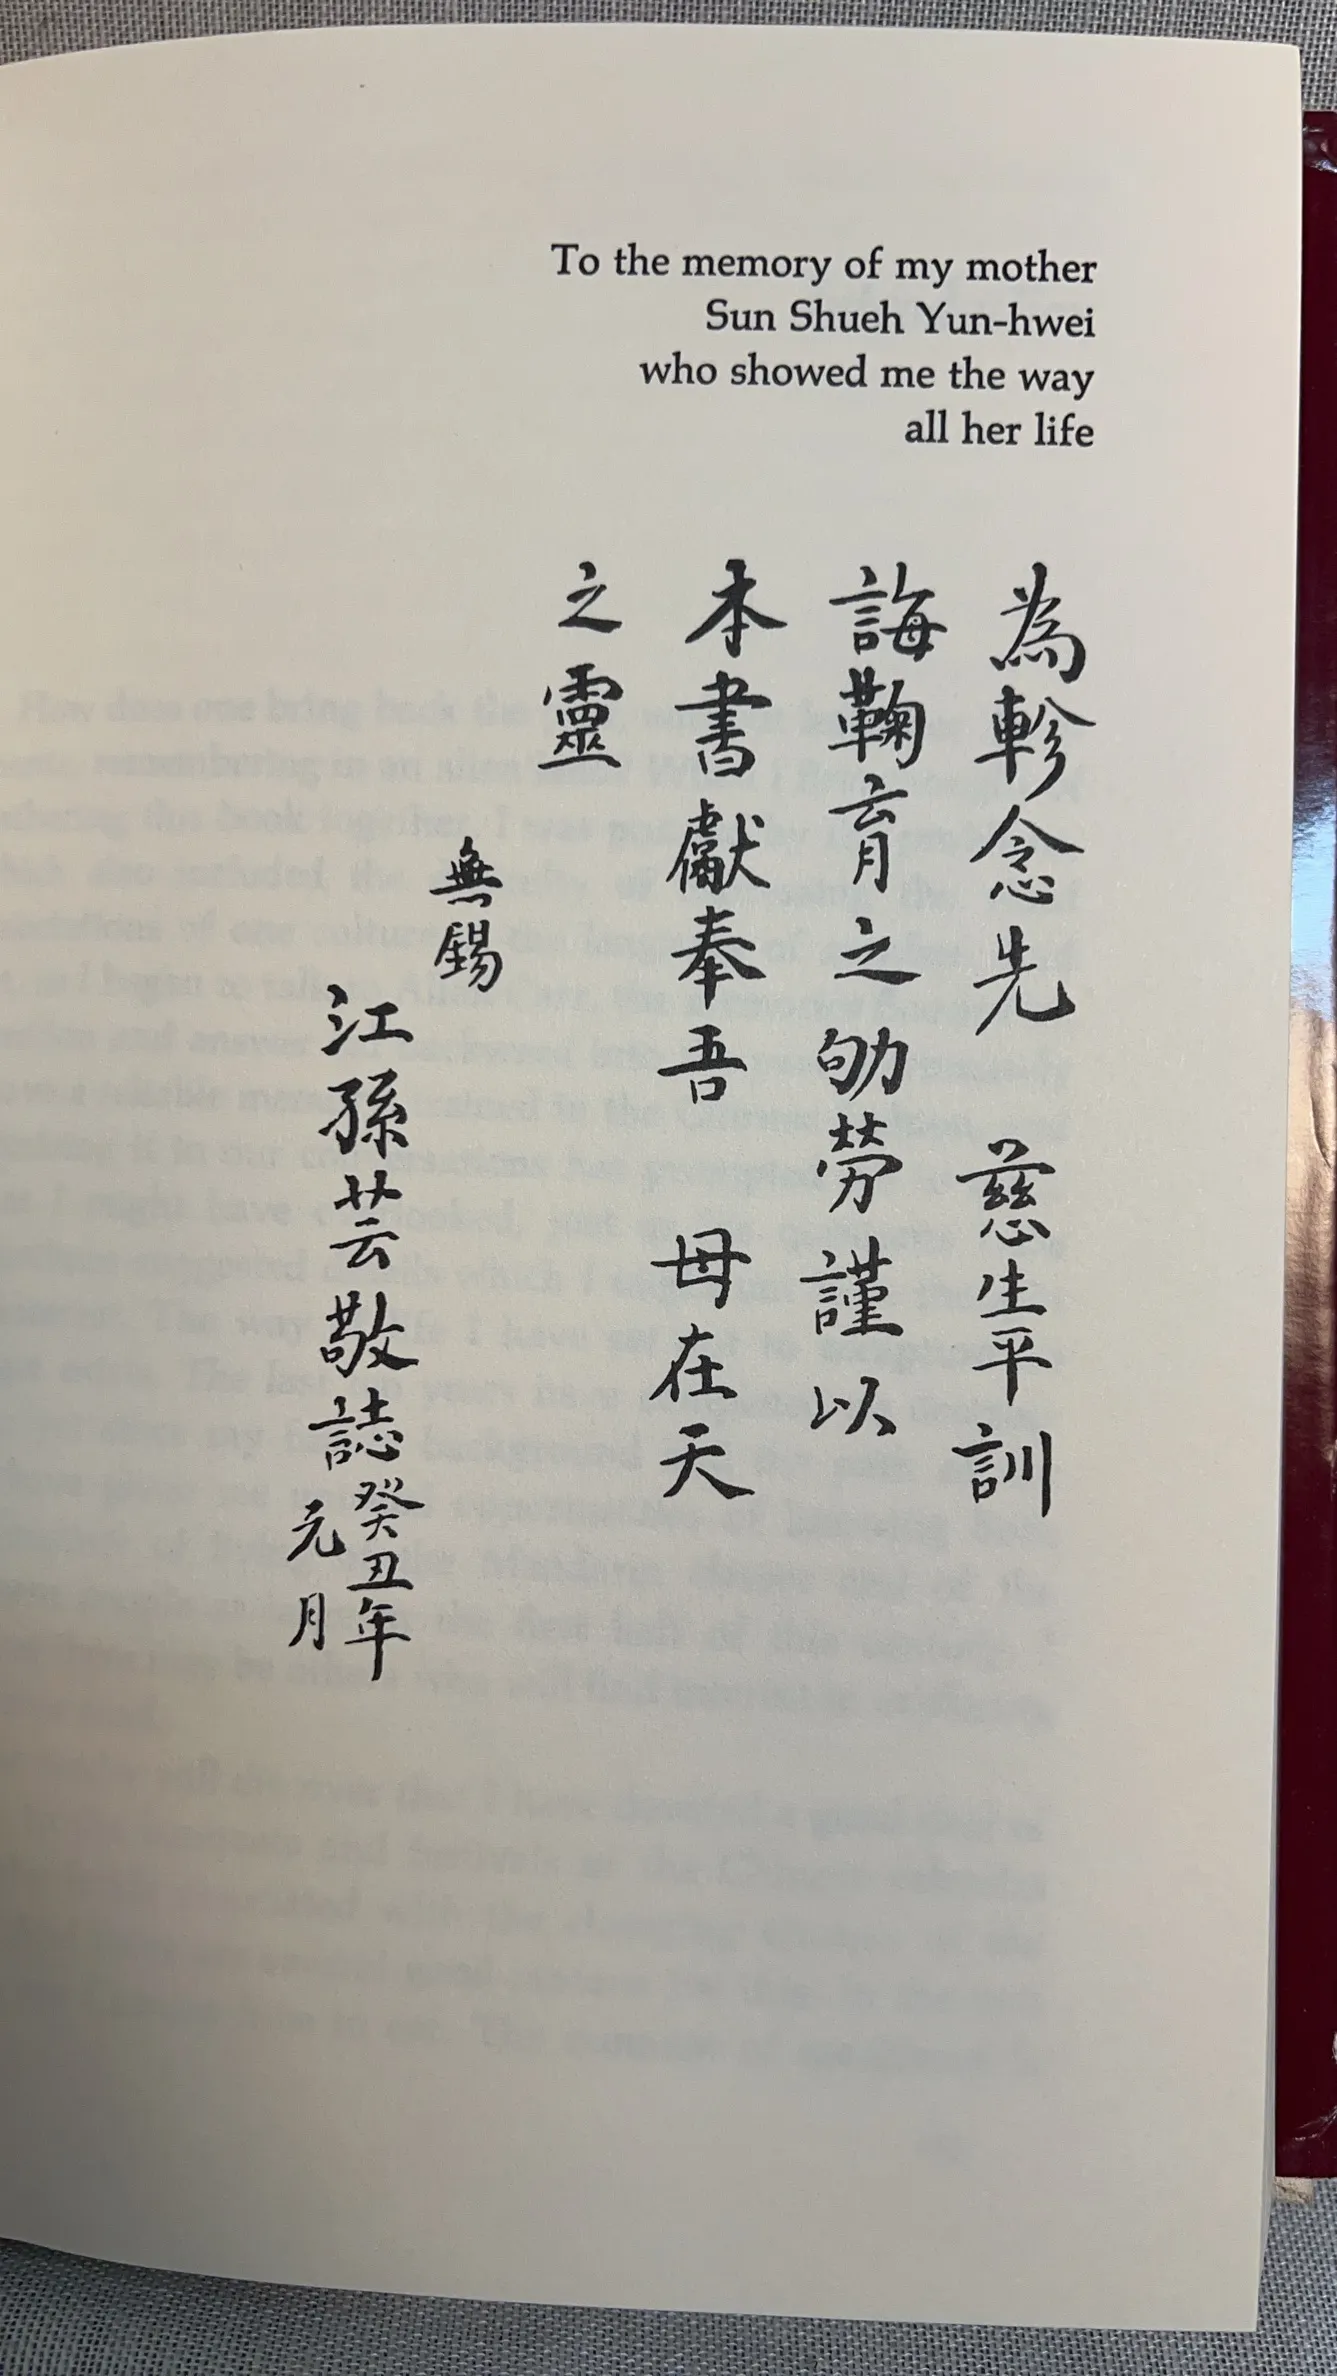 To the memory of my mother
Sun Shueh Yun-hwei
who showed me the way
all her life
為軫念先 慈生平訓
誨鞠育之劬勞謹以
本書獻奉吾 母在天
之靈
無錫
江孫芸敬誌
癸丑年
元月